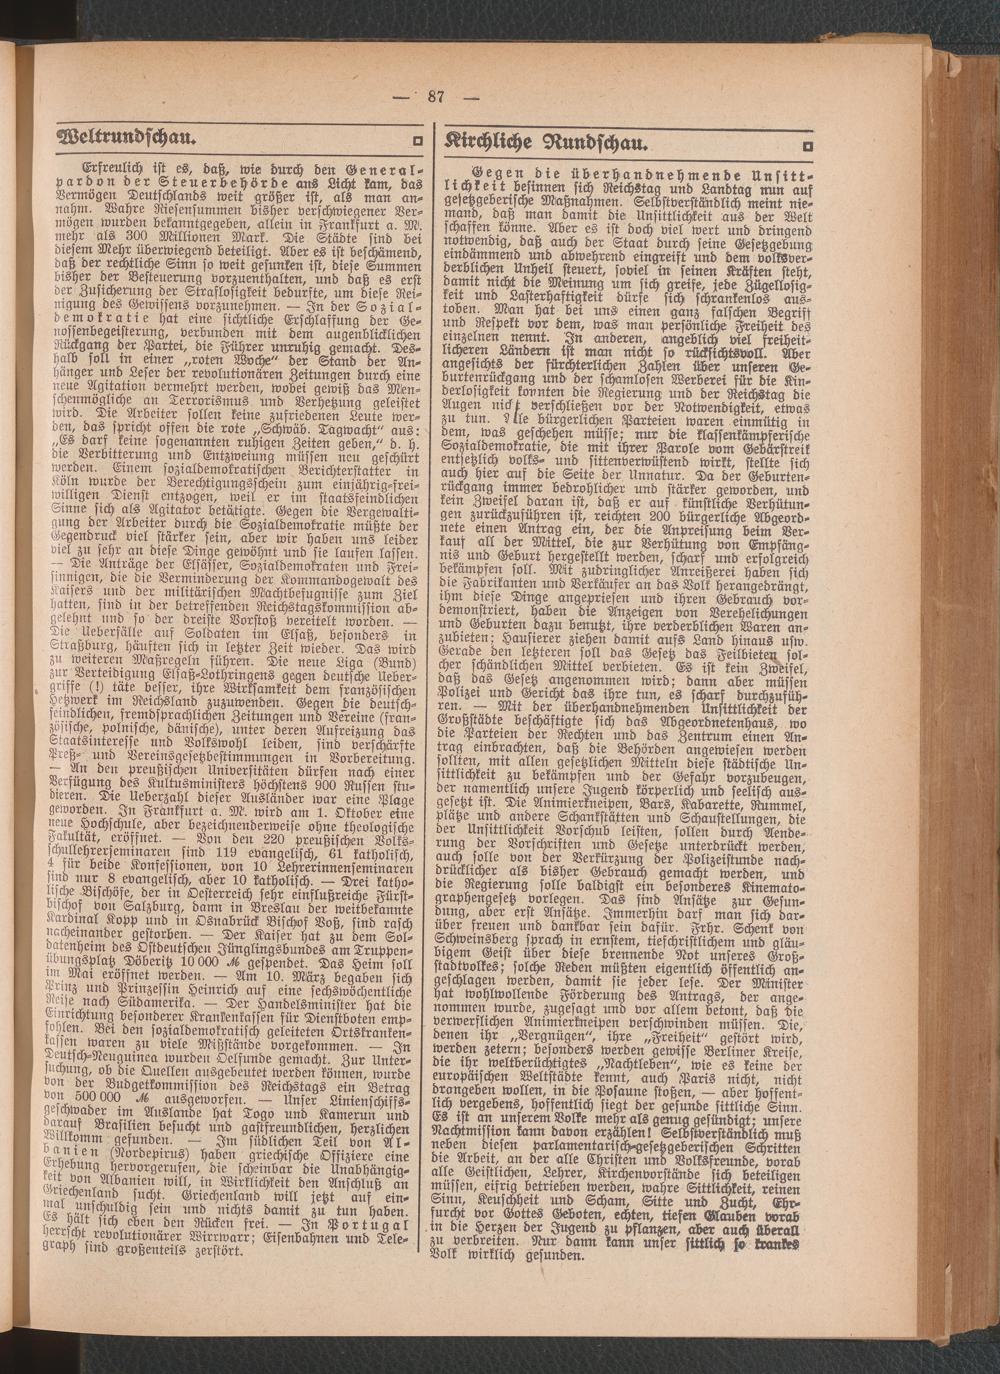 — 87 —
Weltrundschau.
Erfreulich ist es, daß, wie durch den General-
pardon der Steuerbehörde ans Licht kam, das
Vermögen Deutschlands weit größer ist, als man an-
nahm. Wahre Riesensummen bisher verschwiegener Ver-
mögen wurden bekanntgegeben, allein in Frankfurt a. M.
mehr als 300 Millionen Mark. Die Städte sind bei
diesem Mehr überwiegend beteiligt. Aber es ist beschämend,
daß der rechtliche Sinn so weit gesunken ist, diese Summen
bisher der Besteuerung vorzuenthalten, und daß es erst
der Zusicherung der Straflosigkeit bedurfte, um diese Rei-
nigung des Gewissens vorzunehmen. — In der Sozial-
demokratie hat eine sichtliche Erschlaffung der Ge-
nossenbegeisterung, verbunden mit dem augenblicklichen
Rückgang der Partei, die Führer unruhig gemacht. Des-
halb soll in einer „roten Woche“ der Stand der An-
hänger und Leser der revolutionären Zeitungen durch eine
neue Agitation vermehrt werden, wobei gewiß das Men-
schenmögliche an Terrorismus und Verhetzung geleistet
wird. Die Arbeiter sollen keine zufriedenen Leute wer-
den, das spricht offen die rote „Schwäb. Tagwacht“ aus:
„Es darf keine sogenannten ruhigen Zeiten geben,“ d. h.
die Verbitterung und Entzweiung müssen neu geschürt
werden. Einem sozialdemokratischen Berichterstatter in
Köln wurde der Berechtigungsschein zum einjährig-frei-
willigen Dienst entzogen, weil er im staatsfeindlichen
Sinne sich als Agitator betätigte. Gegen die Vergewalti-
gung der Arbeiter durch die Sozialdemokratie müßte der
Gegendruck viel stärker sein, aber wir haben uns leider
viel zu sehr an diese Dinge gewöhnt und sie laufen lassen.
— Die Anträge der Elsässer, Sozialdemokraten und Frei-
sinnigen, die die Verminderung der Kommandogewalt des
Kaisers und der militärischen Machtbefugnisse zum Ziel
hatten, sind in der betreffenden Reichstagskommission ab-
gelehnt und so der dreiste Vorstoß vereitelt worden. —
Die Ueberfälle auf Soldaten im Elsaß, besonders in
Straßburg, häuften sich in letzter Zeit wieder. Das wird
zu weiteren Maßregeln führen. Die neue Liga (Bund)
zur Verteidigung Elsaß-Lothringens gegen deutsche Ueber-
griffe (!) täte besser, ihre Wirksamkeit dem französischen
Hetzwerk im Reichsland zuzuwenden. Gegen die deutsch-
feindlichen, fremdsprachlichen Zeitungen und Vereine (fran-
zösische, polnische, dänische), unter deren Aufreizung das
Staatsinteresse und Volkswohl leiden, sind verschärfte
Preß- und Vereinsgesetzbestimmungen in Vorbereitung.
— An den preußischen Universitäten dürfen nach einer
Verfügung des Kultusministers höchstens 900 Russen stu-
dieren. Die Ueberzahl dieser Ausländer war eine Plage
geworden. In Frankfurt a. M. wird am 1. Oktober eine
neue Hochschule, aber bezeichnenderweise ohne theologische
Fakultät, eröffnet. — Von den 220 preußischen Volks-
schullehrerseminaren sind 119 evangelisch, 61 katholisch,
4 für beide Konfessionen, von 10 Lehrerinnenseminaren
sind nur 8 evangelisch, aber 10 katholisch. — Drei katho-
lische Bischöfe, der in Oesterreich sehr einflußreiche Fürst-
bischof von Salzburg, dann in Breslau der weitbekannte
Kardinal Kopp und in Osnabrück Bischof Voß, sind rasch
nacheinander gestorben. — Der Kaiser hat zu dem Sol-
datenheim des Ostdeutschen Jünglingsbundes am Truppen-
übungsplatz Döberitz 10 000 ℳ gespendet. Das Heim soll
im Mai eröffnet werden. — Am 10. März begaben sich
Prinz und Prinzessin Heinrich auf eine sechswöchentliche
Reise nach Südamerika. — Der Handelsminister hat die
Einrichtung besonderer Krankenkassen für Dienstboten emp-
fohlen. Bei den sozialdemokratisch geleiteten Ortskranken-
kassen waren zu viele Mißstände vorgekommen. — In
Deutsch-Neuguinea wurden Oelfunde gemacht. Zur Unter-
suchung, ob die Quellen ausgebeutet werden können, wurde
von der Budgetkommission des Reichstags ein Betrag
von 500 000 ℳ ausgeworfen. — Unser Linienschiffs-
geschwader im Auslande hat Togo und Kamerun und
darauf Brasilien besucht und gastfreundlichen, herzlichen
Willkomm gefunden. — Im südlichen Teil von Al-
banien (Nordepirus) haben griechische Offiziere eine
Erhebung hervorgerufen, die scheinbar die Unabhängig-
keit von Albanien will, in Wirklichkeit den Anschluß an
Griechenland sucht. Griechenland will jetzt auf ein-
mal unschuldig sein und nichts damit zu tun haben.
Es hält sich eben den Rücken frei. — In Portugal
herrscht revolutionärer Wirrwarr; Eisenbahnen und Tele-
graph sind großenteils zerstört.
Kirchliche Rundschau.
Gegen die überhandnehmende Unsitt-
lichkeit besinnen sich Reichstag und Landtag nun auf
gesetzgeberische Maßnahmen. Selbstverständlich meint nie-
mand, daß man damit die Unsittlichkeit aus der Welt
schaffen könne. Aber es ist doch viel wert und dringend
notwendig, daß auch der Staat durch seine Gesetzgebung
eindämmend und abwehrend eingreift und dem volksver-
derblichen Unheil steuert, soviel in seinen Kräften steht,
damit nicht die Meinung um sich greife, jede Zügellosig-
keit und Lasterhaftigkeit dürfe sich schrankenlos aus-
toben. Man hat bei uns einen ganz falschen Begriff
und Respekt vor dem, was man persönliche Freiheit des
einzelnen nennt. In anderen, angeblich viel freiheit-
licheren Ländern ist man nicht so rücksichtsvoll. Aber
angesichts der fürchterlichen Zahlen über unseren Ge-
burtenrückgang und der schamlosen Werberei für die Kin-
derlosigkeit konnten die Regierung und der Reichstag die
Augen nicht verschließen vor der Notwendigkeit, etwas
zu tun. Alle bürgerlichen Parteien waren einmütig in
dem, was geschehen müsse; nur die klassenkämpferische
Sozialdemokratie, die mit ihrer Parole vom Gebärstreik
entsetzlich volks- und sittenverwüstend wirkt, stellte sich
auch hier auf die Seite der Unnatur. Da der Geburten-
rückgang immer bedrohlicher und stärker geworden, und
kein Zweifel daran ist, daß er auf künstliche Verhütun-
gen zurückzuführen ist, reichten 200 bürgerliche Abgeord-
nete einen Antrag ein, der die Anpreisung beim Ver-
kauf all der Mittel, die zur Verhütung von Empfäng-
nis und Geburt hergestellt werden, scharf und erfolgreich
bekämpfen soll. Mit zudringlicher Anreißerei haben sich
die Fabrikanten und Verkäufer an das Volk herangedrängt,
ihm diese Dinge angepriesen und ihren Gebrauch vor-
demonstriert, haben die Anzeigen von Verehelichungen
und Geburten dazu benutzt, ihre verderblichen Waren an-
zubieten; Hausierer ziehen damit aufs Land hinaus usw.
Gerade den letzteren soll das Gesetz das Feilbieten sol-
cher schändlichen Mittel verbieten. Es ist kein Zweifel,
daß das Gesetz angenommen wird; dann aber müssen
Polizei und Gericht das ihre tun, es scharf durchzufüh-
ren. — Mit der überhandnehmenden Unsittlichkeit der
Großstädte beschäftigte sich das Abgeordnetenhaus, wo
die Parteien der Rechten und das Zentrum einen An-
trag einbrachten, daß die Behörden angewiesen werden
sollten, mit allen gesetzlichen Mitteln diese städtische Un-
sittlichkeit zu bekämpfen und der Gefahr vorzubeugen,
der namentlich unsere Jugend körperlich und seelisch aus-
gesetzt ist. Die Animierkneipen, Bars, Kabarette, Rummel-
plätze und andere Schankstätten und Schaustellungen, die
der Unsittlichkeit Vorschub leisten, sollen durch Aende-
rung der Vorschriften und Gesetze unterdrückt werden,
auch solle von der Verkürzung der Polizeistunde nach-
drücklicher als bisher Gebrauch gemacht werden, und
die Regierung solle baldigst ein besonderes Kinemato-
graphengesetz vorlegen. Das sind Ansätze zur Gesun-
dung, aber erst Ansätze. Immerhin darf man sich dar-
über freuen und dankbar sein dafür. Frhr. Schenk von
Schweinsberg sprach in ernstem, tiefchristlichem und gläu-
bigem Geist über diese brennende Not unseres Groß-
stadtvolkes; solche Reden müßten eigentlich öffentlich an-
geschlagen werden, damit sie jeder lese. Der Minister
hat wohlwollende Förderung des Antrags, der ange-
nommen wurde, zugesagt und vor allem betont, daß die
verwerflichen Animierkneipen verschwinden müssen. Die,
denen ihr „Vergnügen“, ihre „Freiheit“ gestört wird,
werden zetern; besonders werden gewisse Berliner Kreise,
die ihr weltberüchtigtes „Nachtleben“, wie es keine der
europäischen Weltstädte kennt, auch Paris nicht, nicht
drangeben wollen, in die Posaune stoßen, — aber hoffent-
lich vergebens, hoffentlich siegt der gesunde sittliche Sinn.
Es ist an unserem Volke mehr als genug gesündigt; unsere
Nachtmission kann davon erzählen! Selbstverständlich muß
neben diesen parlamentarisch-gesetzgeberischen Schritten
die Arbeit, an der alle Christen und Volksfreunde, vorab
alle Geistlichen, Lehrer, Kirchenvorstände sich beteiligen
müssen, eifrig betrieben werden, wahre Sittlichkeit, reinen
Sinn, Keuschheit und Scham, Sitte und Zucht, Ehr-
furcht vor Gottes Geboten, echten, tiefen Glauben vorab
in die Herzen der Jugend zu pflanzen, aber auch überall
zu verbreiten. Nur dann kann unser sittlich so krankes
Volk wirklich gesunden.